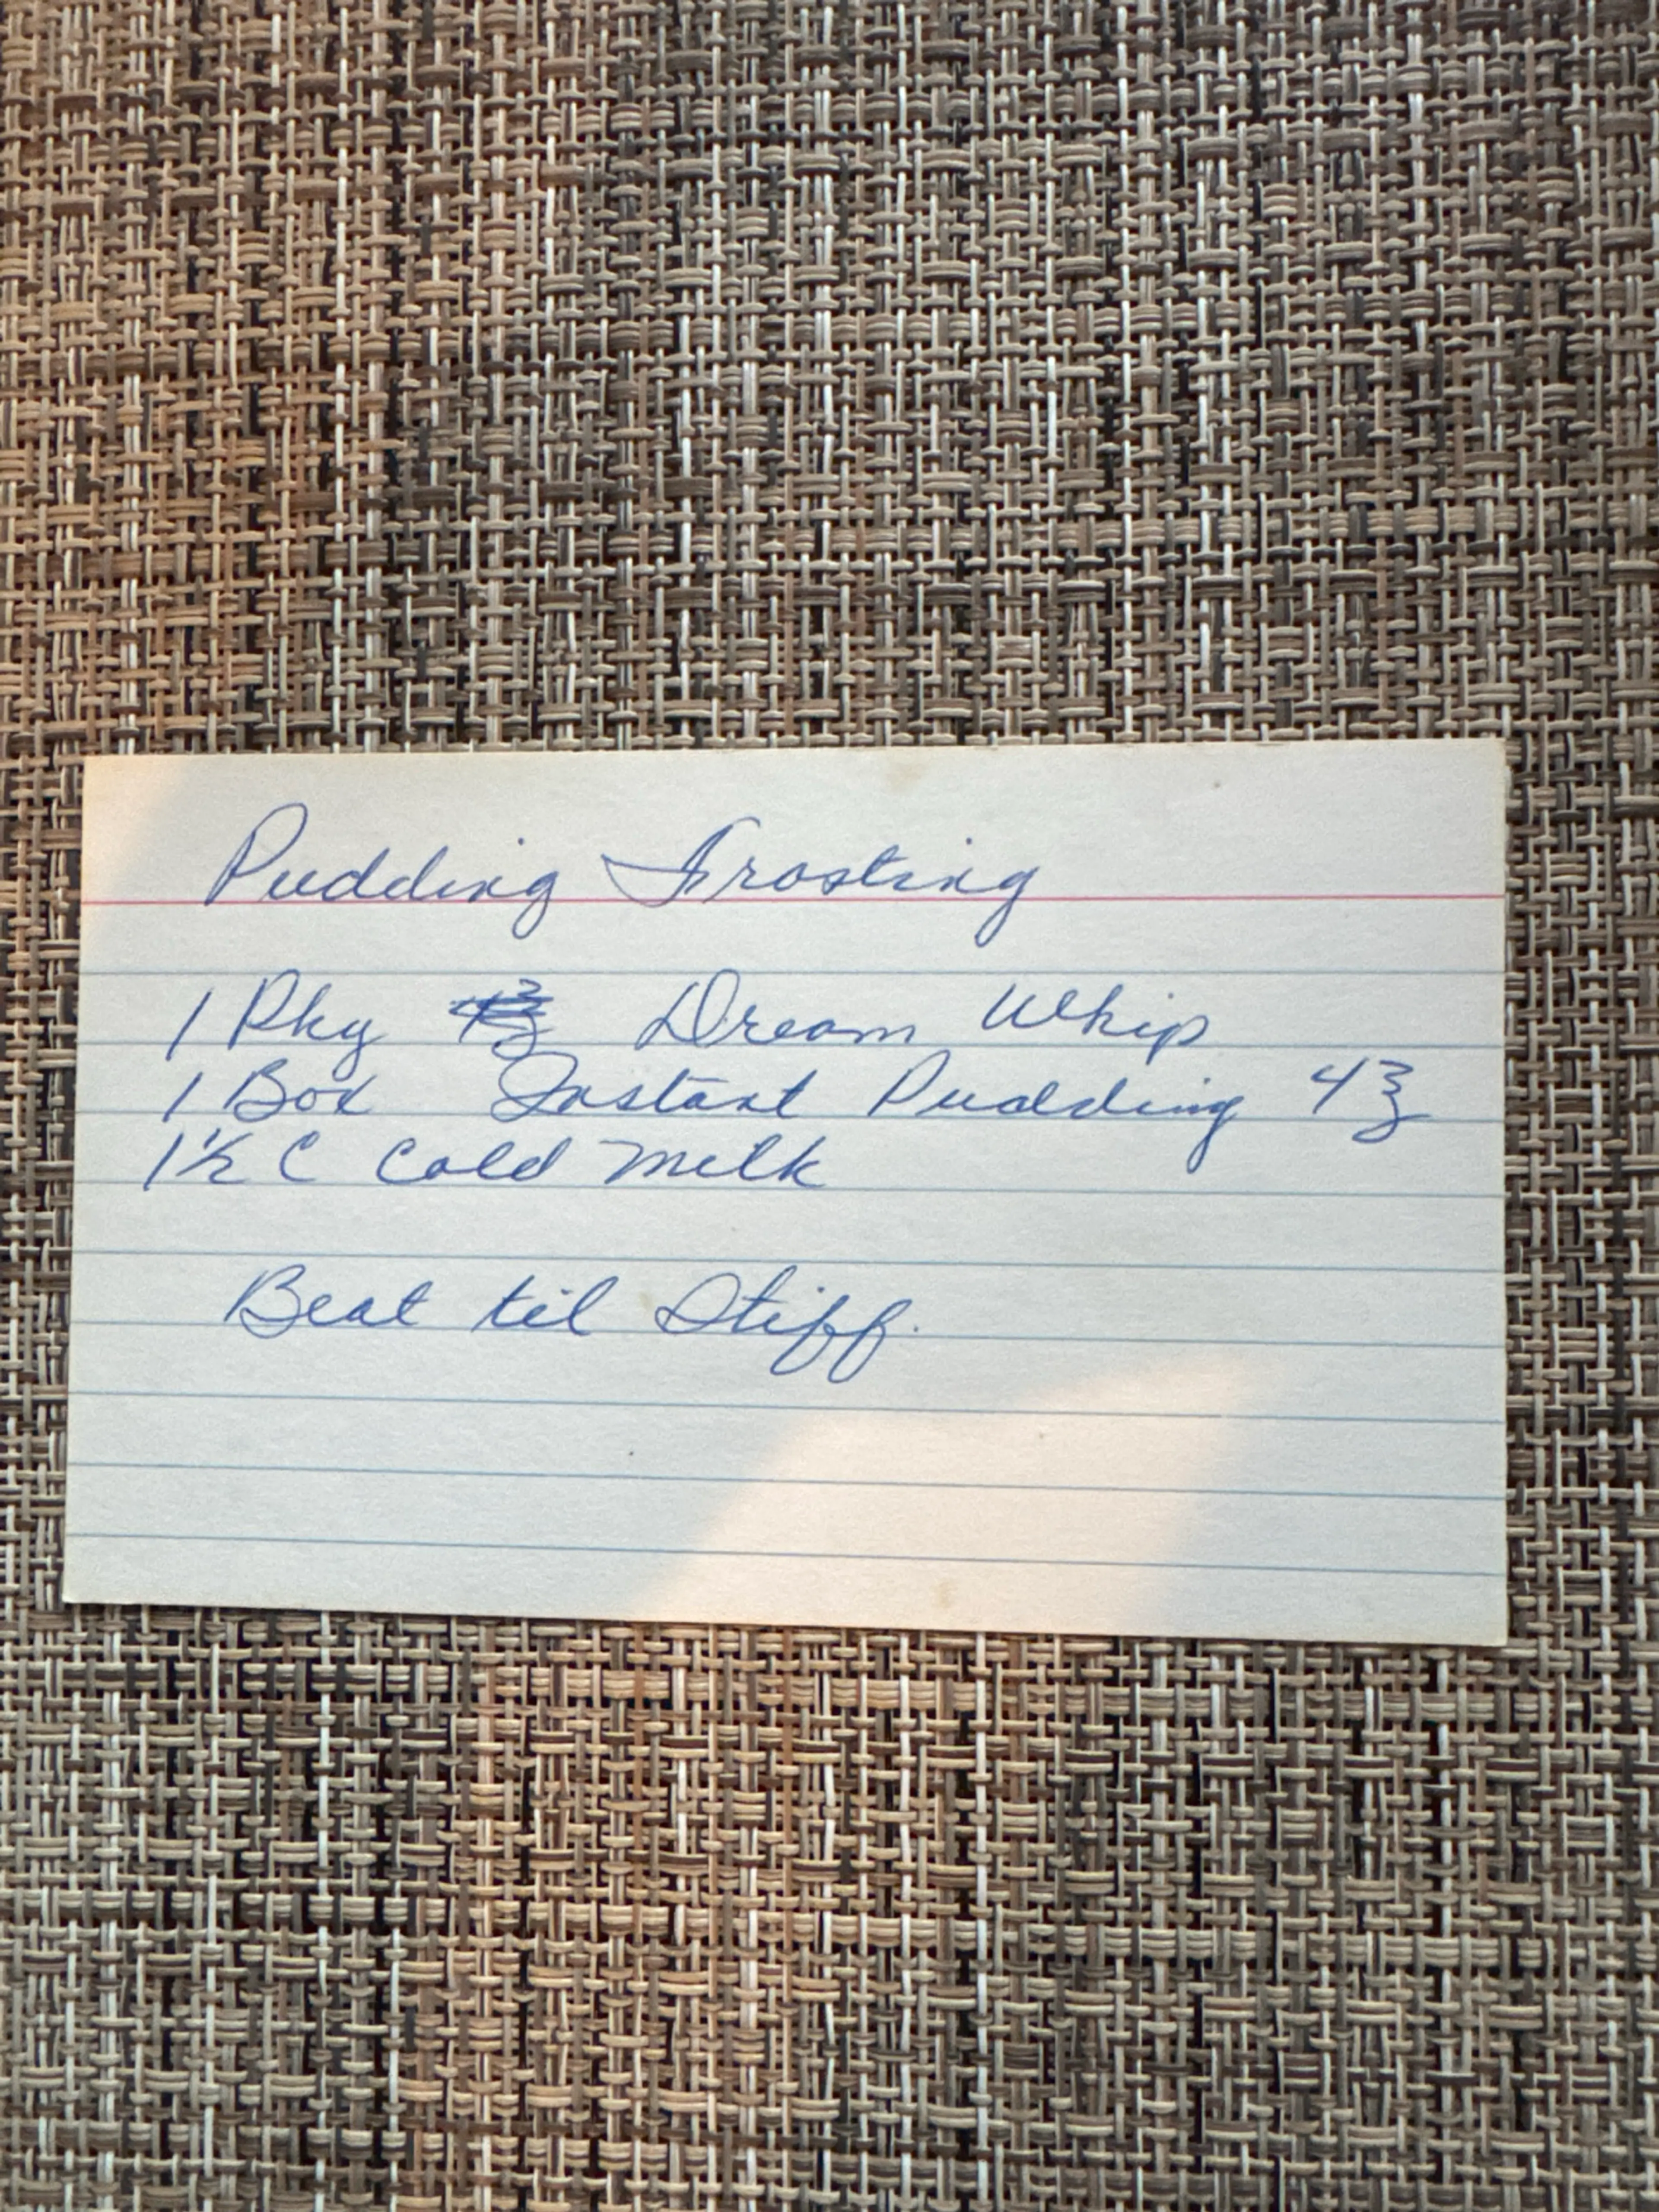 Pudding Frosting
1 Pkg Dream Whip
1 Box Instant Pudding 4℥
1½ C Cold Milk
Beat til Stiff.